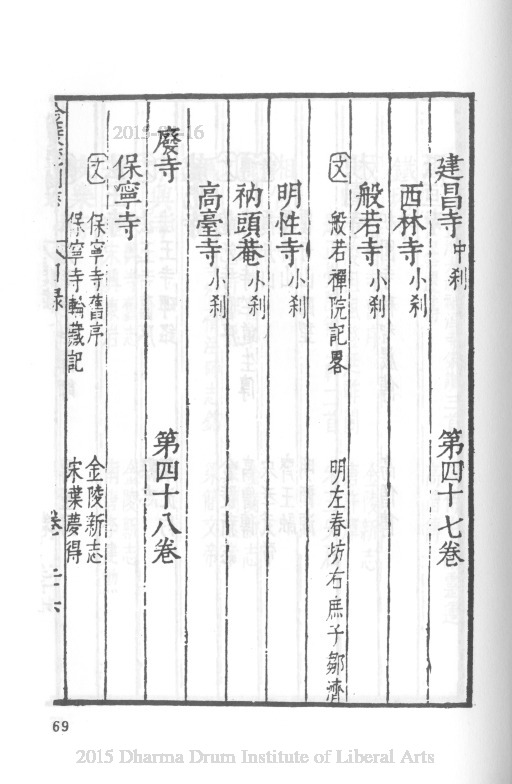 建昌寺 中刹 第四十七卷
西林寺 小刹
般若寺 小刹
文 般若禪院記畧 明左春坊右庶子鄒濟
明性寺 小刹
衲頭菴 小刹
高臺寺 小刹
廢寺 第四十八卷
保寧寺
文 保寧寺舊序 金陵新志
保寧寺輪藏記 宋葉夢得
69
2015 Dharma Drum Institute of Liberal Arts